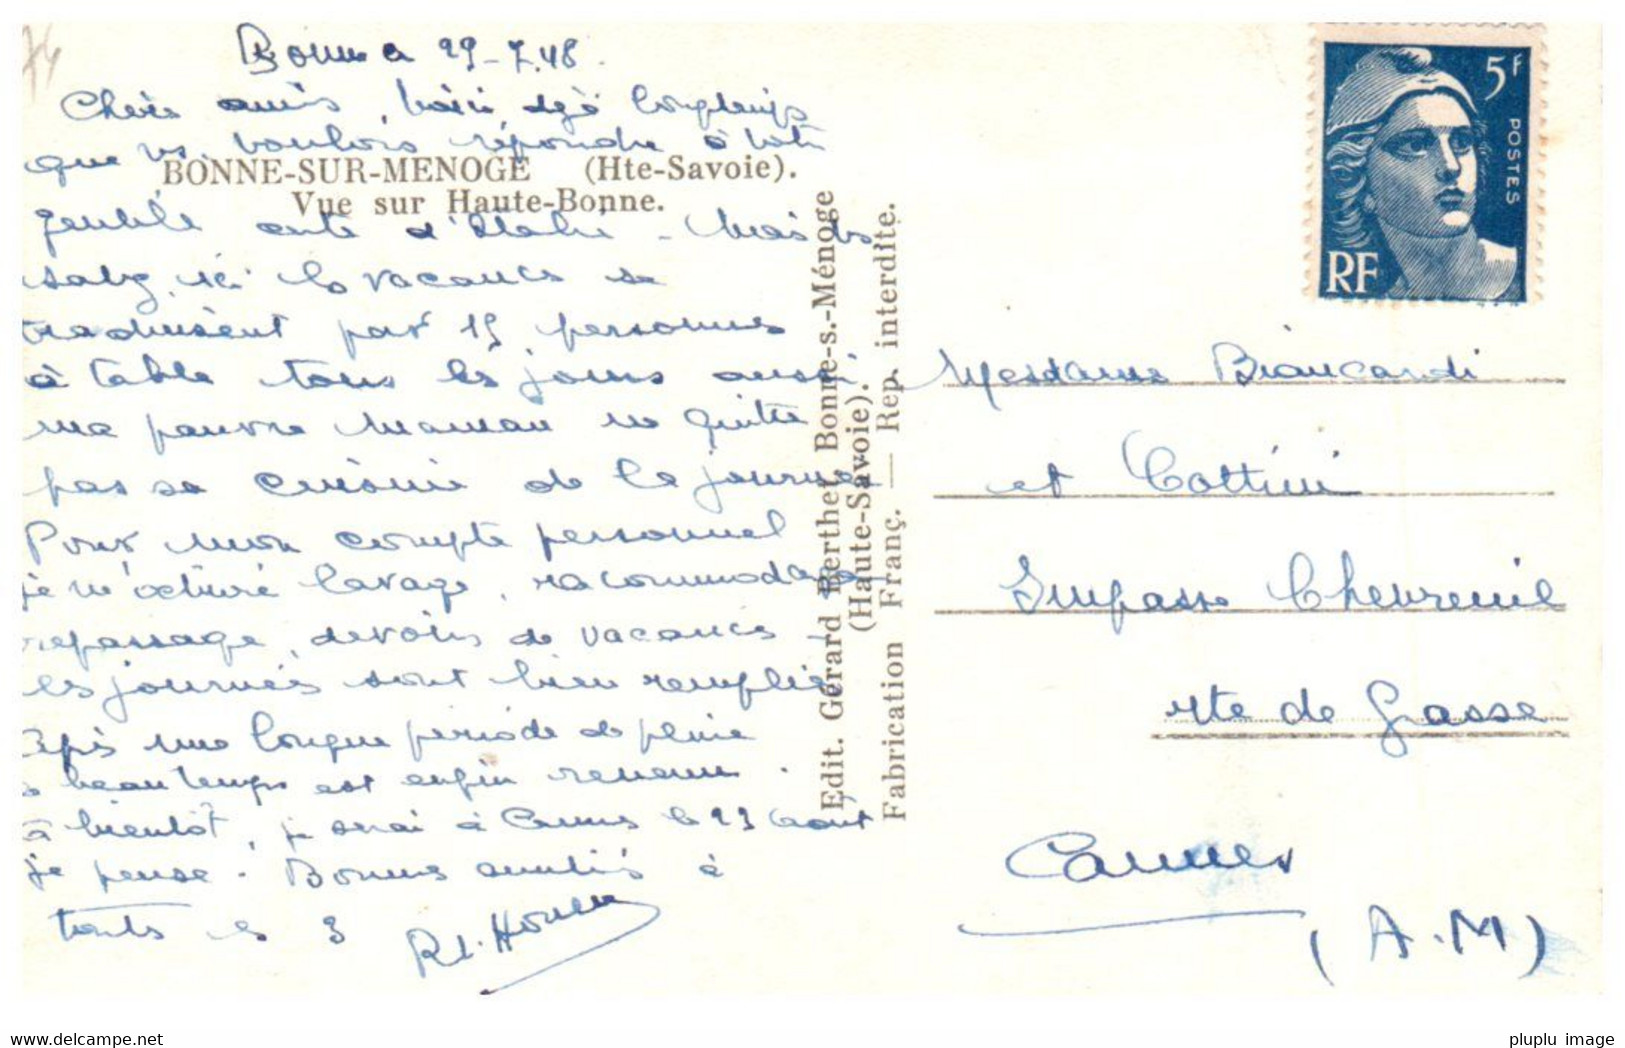 74
Bonne 29-7.48.
Chères amis, voici déjà longtemps
que vs voulais répondre à votre
BONNE-SUR-MENOGE (Hte-Savoie).
Vue sur Haute-Bonne.
gentille carte d'Italie - Mais vs
savez, ici les vacances se
traduisent par 15 personnes
à table tous les jours aussi
ma pauvre Maman ne quitte
pas sa cuisine de la journée
Pour mon compte personnel
je m'active lavage, raccommodage
repassage, devoirs de vacances -
les journées sont bien remplies
Après une longue période de pluie
le beau temps est enfin revenu.
à bientôt, je serai à Cannes le 23 août
je pense. Bonnes amitiés à
toutes les 3
Edit. Gérard Berthet Bonne-s.-Ménoge
(Haute-Savoie).
Fabrication Franç. — Rep. interdite.
5F
POSTES
RF
Mesdames Biancardi
et Cottini
Impasse Chevreuil
rte de Grasse
Cannes
(A.M)
delcampe.net
pluplu image